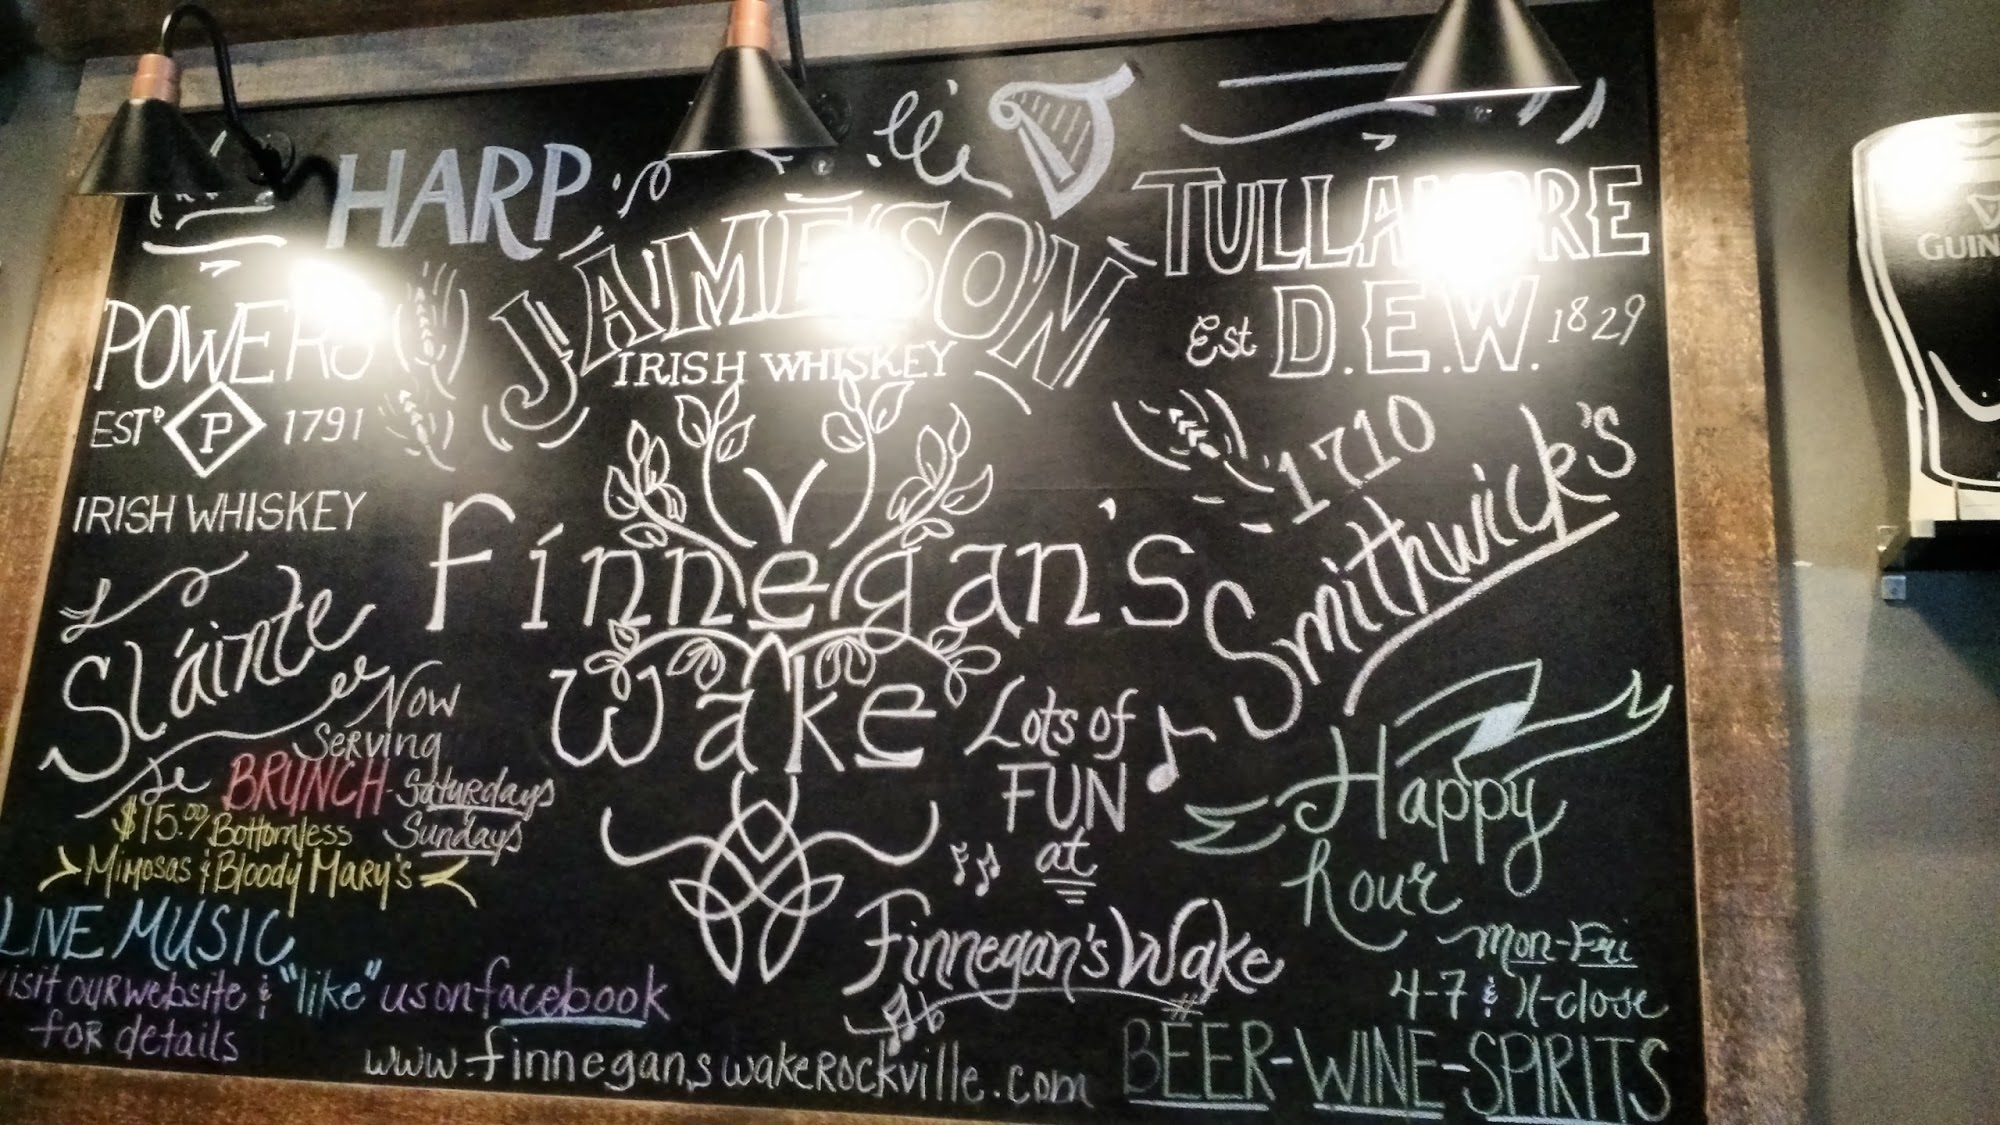 HARP
JAMESON
IRISH WHISKEY
TULLAMORE
D.E.W.
Est 1829
POWERS
ESTD P 1791
IRISH WHISKEY
GUIN
1710
Smithwick's
Finnegan's
wake
Sláinte
Now
Serving
BRUNCH-Saturdays
Sundays
$15.00/Bottomless
Mimosas & Bloody Mary's
LIVE MUSIC
visit our website & "like" us on facebook
for details
www.finneganswakeRockville.com
Lots of
FUN
at
Finnegan's Wake
Happy
hour
Mon-Fri
4-7 & 11-close
BEER-WINE-SPIRITS